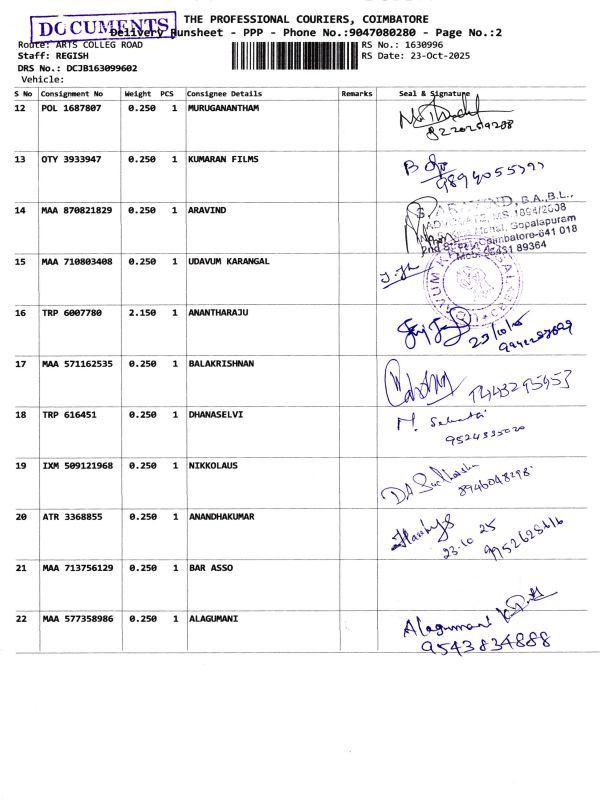 DOCUMENTS
THE PROFESSIONAL COURIERS, COIMBATORE
Delivery Runsheet - PPP - Phone No.:9047080280 - Page No.:2
Route: ARTS COLLEG ROAD
RS No.: 1630996
Staff: REGISH
RS Date: 23-Oct-2025
DRS No.: DCJB163099602
Vehicle:
S No Consignment No Weight PCS Consignee Details Remarks Seal & Signature
12 POL 1687807 0.250 1 MURUGANANTHAM
8220259288
13 OTY 3933947 0.250 1 KUMARAN FILMS
14 MAA 870821829 0.250 1 ARAVIND
S. ARAVIND, B.A.,B.L.,
MS 1894/2008
Gopalapuram
Coimbatore-641 018
15 MAA 710803408 0.250 1 UDAVUM KARANGAL
16 TRP 6007780 2.150 1 ANANTHARAJU
17 MAA 571162535 0.250 1 BALAKRISHNAN
18 TRP 616451 0.250 1 DHANASELVI
9524335020
19 IXM 509121968 0.250 1 NIKKOLAUS
8946048298
20 ATR 3368855 0.250 1 ANANDHAKUMAR
23.10.25
9952628616
21 MAA 713756129 0.250 1 BAR ASSO
22 MAA 577358986 0.250 1 ALAGUMANI
Alagumani
9543834888